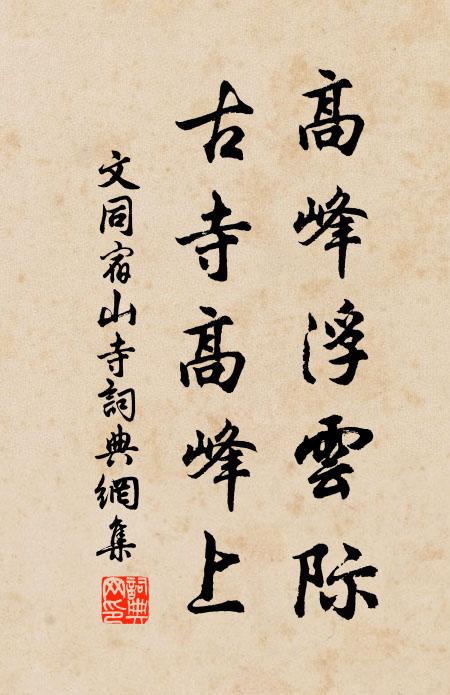 高峰浮雲际
古寺高峰上
文同宿山寺詞典網集
詞典網印